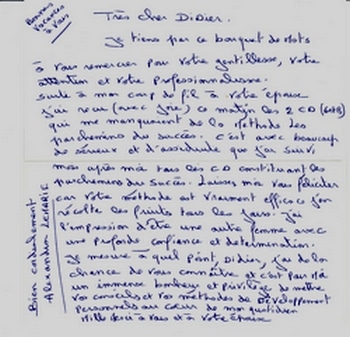 Bonnes
Vacances
à vous
Très cher Didier.
Je tiens par ce bouquet de mots
à vous remercier pour votre gentillesse, votre
attention et votre professionnalisme.
suite à mon coup de fil à votre épouse
j'ai reçu (avec joie) ce matin les 2 CD
qui me manquaient de la Méthode les
parchemins du succès. C'est avec beaucoup
de sérieux et d'assiduité que j'ai suivi
mois après mois tous les CD constituant les
parchemins du succès. Laissez moi vous féliciter
car votre méthode est vraiment efficace j'en
récolte les fruits tous les jours. j'ai
l'impression d'être une autre femme avec
une profonde confiance et determination.
Je mesure à quel point, Didier, j'ai de la
chance de vous connaître et c'est par moi
un immense bonheur et privilège de mettre
vos conseils et vos méthodes de Développement
Personnels au cœur de mon quotidien
Mille merci à vous et à votre épouse
Bien cordialement
Alexandra